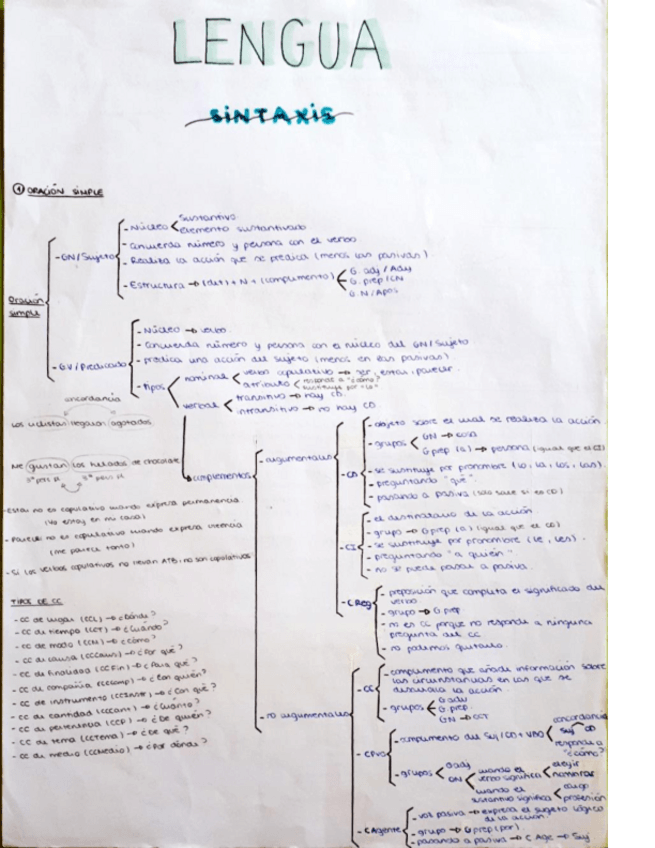 LENGUA
SINTAXIS
① ORACIÓN SIMPLE
Oración simple
- GN/Sujeto
- Núcleo
Sustantivo
elemento sustantivado
- Concuerda número y persona con el verbo
- Realiza la acción que se predica (menos las pasivas).
- Estructura → (det) + N + (complemento)
G. adj / Ady
G. prep / CN
G. N / Apos
- GV/Predicado
- Núcleo → verbo.
- Concuerda número y persona con el núcleo del GN/Sujeto
- predica una acción del sujeto (menos en las pasivas)
- Tipos
nominal
verbo copulativo → ser, estar, parecer.
atributo
responde a "¿cómo?"
sustituye por "lo"
verbal
transitivo → hay CD.
intransitivo → no hay CD.
concordancia
Los ciclistas llegaron agotados
Me gustan los helados de chocolate
3ª pers pl 3ª pers pl
- Estar no es copulativo cuando expresa permanencia
(Yo estoy en mi casa)
- Parecer no es copulativo cuando expresa creencia
(me parece tonto)
- Si los verbos copulativos no llevan ATB, no son copulativos.
TIPOS DE CC
- CC de lugar (CCL) → ¿Dónde?
- CC de tiempo (CCT) → ¿Cuándo?
- CC de modo (CCM) → ¿Cómo?
- CC de causa (CCCaus) → ¿Por qué?
- CC de finalidad (CCFin) → ¿Para qué?
- CC de compañía (CCComp) → ¿Con quién?
- CC de instrumento (CCInstr) → ¿Con qué?
- CC de cantidad (CCCant) → ¿Cuánto?
- CC de pertenencia (CCP) → ¿De quién?
- CC de tema (CCTema) → ¿De qué?
- CC de medio (CCMedio) → ¿Por dónde?
complementos
- argumentales
- CD
- objeto sobre el cual se realiza la acción
- grupos
GN → cosa
G prep (a) → persona (igual que el CI)
- se sustituye por pronombre (lo, la, los, las).
- preguntando "qué".
- pasando a pasiva (solo sale si es CD)
- CI
- el destinatario de la acción
- grupo → G prep (a) (igual que el CD)
- se sustituye por pronombre (le, les).
- preguntando "a quién"
- no se puede pasar a pasiva.
- C Reg
- preposición que completa el significado del
verbo
- grupo → G prep
- no es CC porque no responde a ninguna
pregunta del CC
- no podemos quitarlo.
- no argumentales
- CC
- complemento que añade información sobre
las circunstancias en las que se
desarrolla la acción.
- grupos
G adv
G prep.
GN → CCT
- CPvo
- complemento del Suj/CD + VBO
concordancia
Suj CD
responde a
"¿cómo?"
- grupos
G adj
GN
cuando el
verbo significa
elegir
nombrar
cuando el
sustantivo significa
cargo
profesión
- C Agente
- voz pasiva → expresa el sujeto lógico
de la acción.
- grupo → G prep (por)
- pasando a pasiva → C Age → Suj